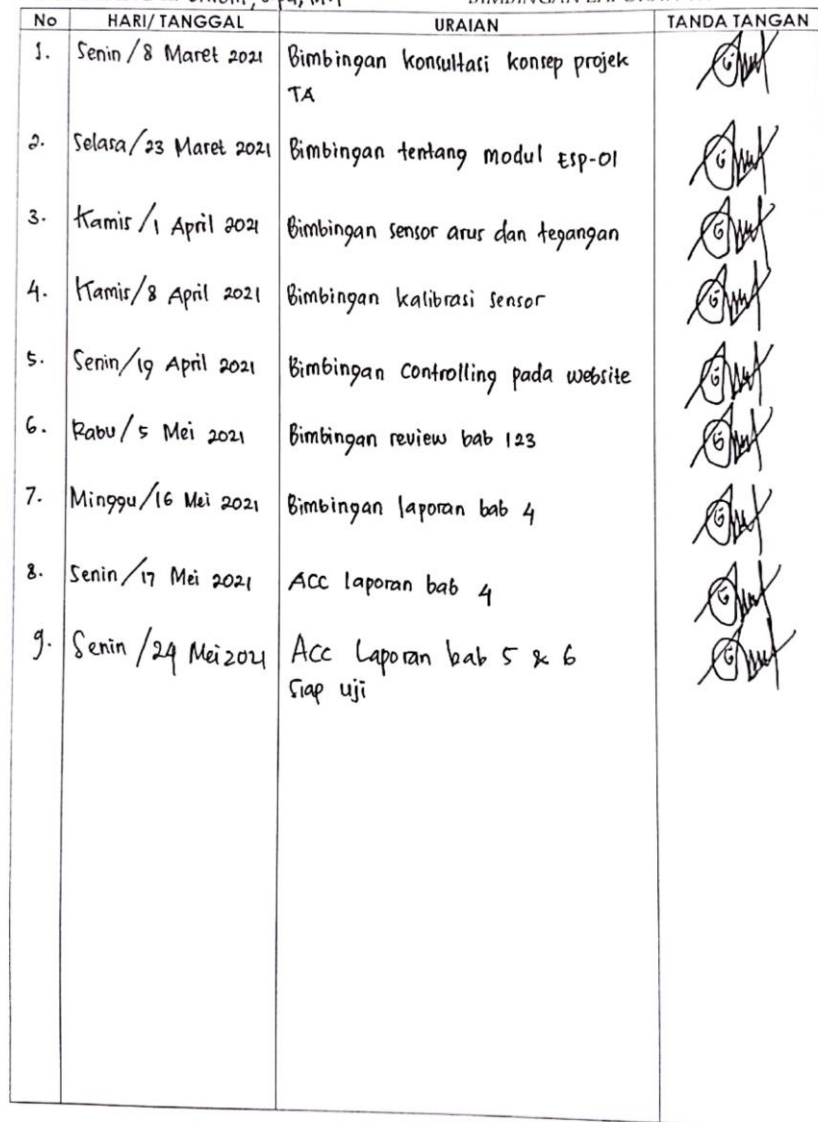 No HARI/TANGGAL URAIAN TANDA TANGAN
1. Senin/8 Maret 2021 Bimbingan konsultasi konsep projek
TA
2. Selasa/23 Maret 2021 Bimbingan tentang modul ESP-01
3. Kamis/1 April 2021 Bimbingan sensor arus dan tegangan
4. Kamis/8 April 2021 Bimbingan kalibrasi sensor
5. Senin/19 April 2021 Bimbingan Controlling pada website
6. Rabu/5 Mei 2021 Bimbingan review bab 123
7. Minggu/16 Mei 2021 Bimbingan laporan bab 4
8. Senin/17 Mei 2021 ACC laporan bab 4
9. Senin/24 Mei 2021 Acc Laporan bab 5 & 6
Siap uji